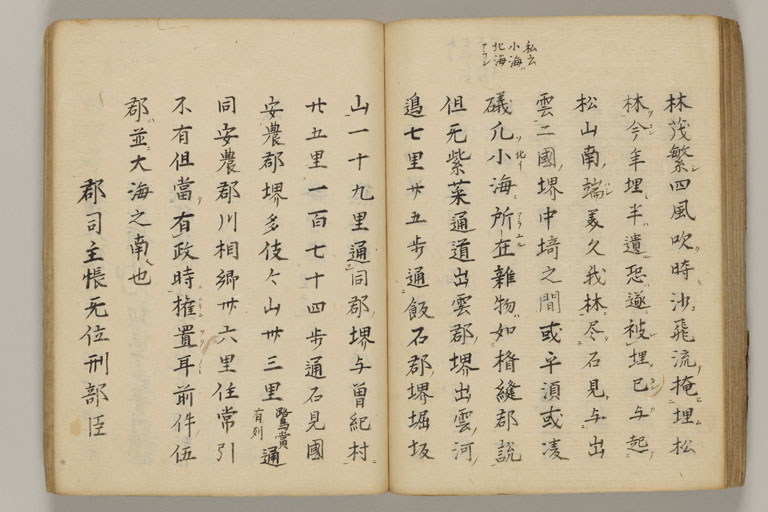 私云
小海ハ
北海
ナラン
林茂繁四風吹時沙飛流掩埋松
林今年埋半遺恐遂被埋已与起
松山南端美久我林尽石見与出
雲二國堺中埼之間或平湏或凌
礒凢小海所在雜物如楯縫郡說
但旡紫菜通道出雲郡堺出雲河
邉七里廿五步通飯石郡堺堀坂
山一十九里通同郡堺与曽紀村
廿五里一百七十四步通石見國
安農郡堺多伎々山卅三里
路常
有剗
通
同安農郡川相郷卅六里住常引
不有但當有政時権置耳前件伍
郡並大海之南也
郡司主帳旡位刑部臣